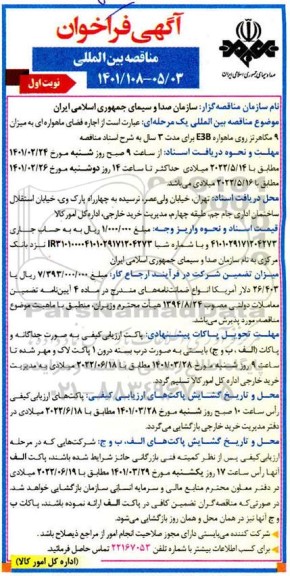 آگهی فراخوان
مناقصه بین المللی
۱۴۰۱/۱۰۸-۰۵/۰۳
نوبت اول
صدا و سیمای جمهوری اسلامی ایران
نام سازمان مناقصه‌گزار: سازمان صدا و سیمای جمهوری اسلامی ایران
موضوع مناقصه بین المللی یک مرحله‌ای: عبارت است از اجاره فضای ماهواره ای به میزان
۹ مگاهرتز روی ماهواره E3B برای مدت ۳ سال به شرح اسناد مناقصه
مهلت و نحوه دریافت اسناد: از ساعت ۹ صبح روز شنبه مورخ ۱۴۰۱/۰۲/۲۴
مطابق با ۲۰۲۲/۵/۱۴ میلادی حداکثر تا ساعت ۱۴ روز دوشنبه مورخ ۱۴۰۱/۰۲/۲۶
مطابق با ۲۰۲۲/۵/۱۶ میلادی می‌باشد
محل دریافت اسناد: تهران، خیابان ولی‌عصر، نرسیده به چهارراه پارک وی، خیابان استقلال
ساختمان اداری جام جم، طبقه چهارم، مدیریت خرید خارجی، اداره‌کل امور کالا
قیمت اسناد و نحوه واریز وجه: مبلغ ۱/۰۰۰/۰۰۰ ریال به به حساب جاری
۴۱۰۱۰۲۹۱۷۱۲۰۴۲۷۳ و با شماره شبا IR۳۱۰۱۰۰۰۰۴۱۰۱۰۲۹۱۷۱۲۰۴۲۷۳ نزد بانک
مرکزی به نام سازمان صدا و سیمای جمهوری اسلامی ایران
میزان تضمین شرکت در فرآیند ارجاع کار: مبلغ ۷/۳۹۳/۰۰۰/۰۰۰ ریال یا
۲۶/۴۰۳ دلار آمریکا انواع ضمانت‌نامه‌های مندرج در ماده ۴ آیین‌نامه تضمین
معاملات دولتی مصوب ۱۳۹۴/۸/۲۴ هیأت محترم وزیران، منطبق با ماهیت موضوع
مناقصه، مورد پذیرش می‌باشد.
مهلت تحویل پاکات پیشنهادی: پاکت ارزیابی کیفی به صورت جداگانه و
پاکات (الف ، ب و ج) بایستی به صورت درب بسته درون ۱ پاکت لاک و مهر شده تا
ساعت ۹ روز شنبه مورخ ۱۴۰۱/۰۳/۲۸ مطابق با ۲۰۲۲/۰۶/۱۸ میلادی به مدیریت
خرید خارجی اداره کل امور کالا تسلیم گردد.
محل و تاریخ گشایش پاکت‌های ارزیابی کیفی: پاکت‌های ارزیابی کیفی،
رأس ساعت ۱۰ صبح روز شنبه مورخ ۱۴۰۱/۰۳/۲۸ مطابق با ۲۰۲۲/۶/۱۸ میلادی در
دفتر مدیریت خرید خارجی بازگشایی می‌گردد.
محل و تاریخ گشایش پاکت‌های الف، ب و ج: شرکت‌هایی که در مرحله
ارزیابی‌کیفی پس از نظر کمیته فنی بازرگانی حائز شرایط شده باشند، پاکت الف
آنها رأس ساعت ۱۷ روز یکشنبه مورخ ۱۴۰۱/۰۳/۲۹ مطابق با ۲۰۲۲/۰۶/۱۹ میلادی
در دفتر معاون محترم منابع مالی و سرمایه انسانی سازمان بازگشایی خواهد شد.
در صورتی‌که مناقصه گران تضمین کافی در پاکت الف ارائه نموده باشند، پاکات ب
و ج آنها نیز در همان محل و همان روز بازگشایی می‌شود.
شرکت کننده می‌بایستی دارای مجوز صلاحیت انجام امور از مراجع ذیصلاح باشد.
برای کسب اطلاعات بیشتر با شماره تلفن ۲۲۱۶۷۰۵۳ تماس حاصل فرمائید.
(اداره کل امور کالا)